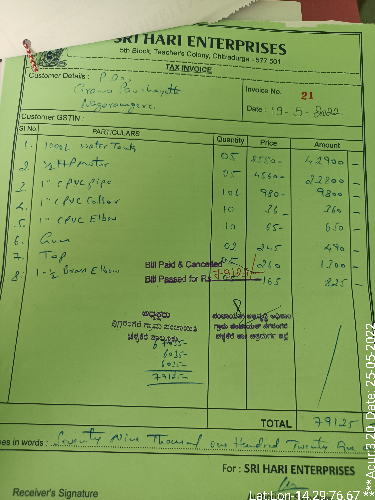 SRI HARI ENTERPRISES
5th Block, Teacher's Colony, Chitradurga - 577 501
TAX INVOICE
Customer Details : P D O,
Grama Panchayath
Invoice No. 21
Date : 19-5-2022
Customer GSTIN :
Sl No. PARTICULARS Quantity Price Amount
1. 1000L water Tank 05 8580- 42900 -
2. 1/2 HP motor 05 4560- 22800 -
3. 1" CPVC pipe 980- 9800 -
4. 1" CPVC 10 36 - 360 -
5. 1" CPVC Elbow 10 65- 650 -
6. Gum 02 245 490 -
7. Tap 05 260 1300 -
8. 1-1/2 Brass Elbow 165 825 -
Bill Paid & Cancelled
Bill Passed for Rs 79125/-
ಅಧ್ಯಕ್ಷರು
ಗ್ರಾಮ ಪಂಚಾಯಿತಿ
6035-
6035-
79125-
TOTAL 79125
es in words : Seventy Nine Thousand one Hundred Twenty Five
For : SRI HARI ENTERPRISES
Receiver's Signature
Lat:Lon-14.29:76.67 ***Acur:3.20, Date: 25-05-2022